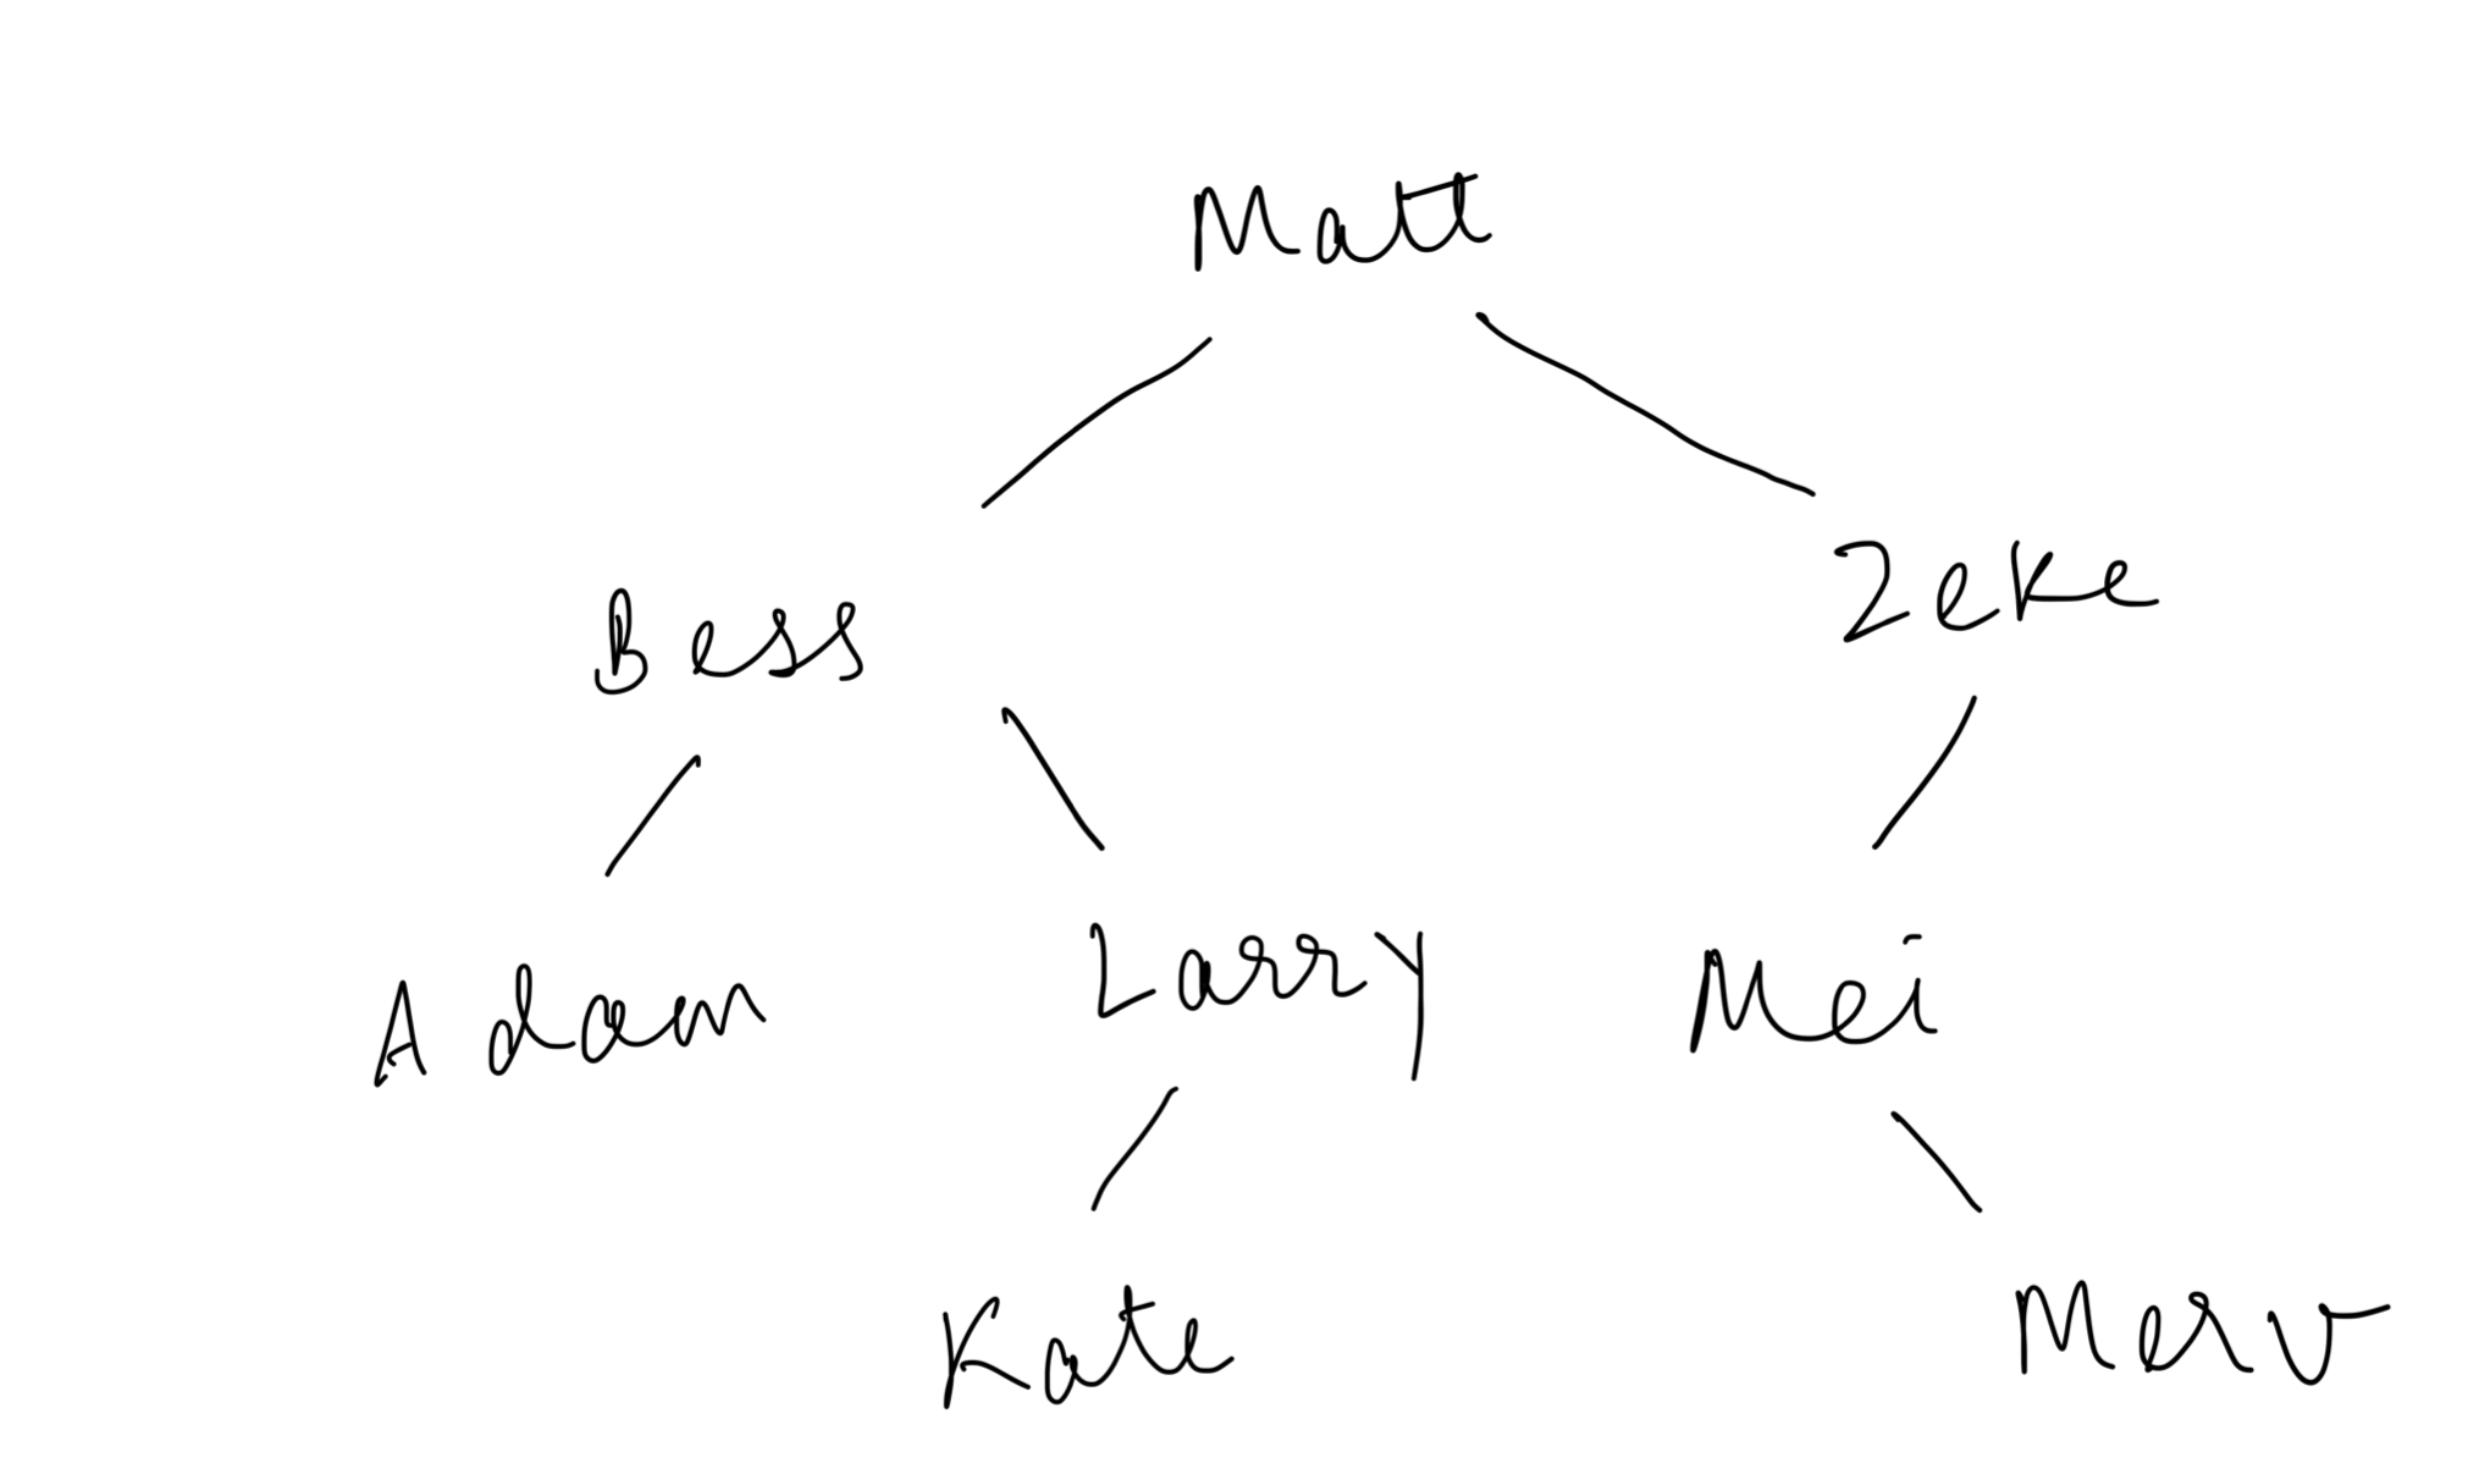 Matt
Bess Zeke
Adam Larry Mei
Kate Merv